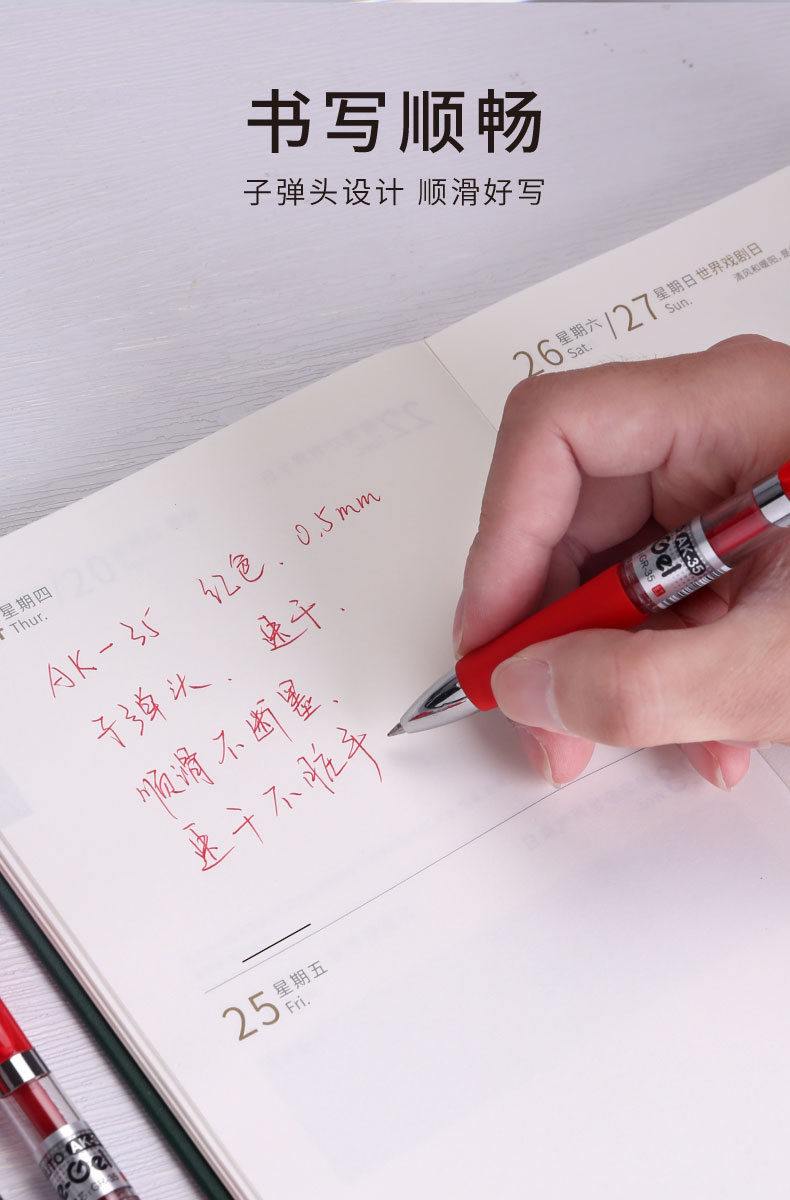 书写顺畅
子弹头设计 顺滑好写
26 星期六 Sat. / 27 星期日 Sun. 世界戏剧日
清风和暖阳，是
星期四
Thur.
AK-35 红色、0.5mm
子弹头、速干、
顺滑不断墨、
速干不脏手
25 星期五
Fri.
AK-35
Gel
GR-35
AK-3
e-Gel
GR-35